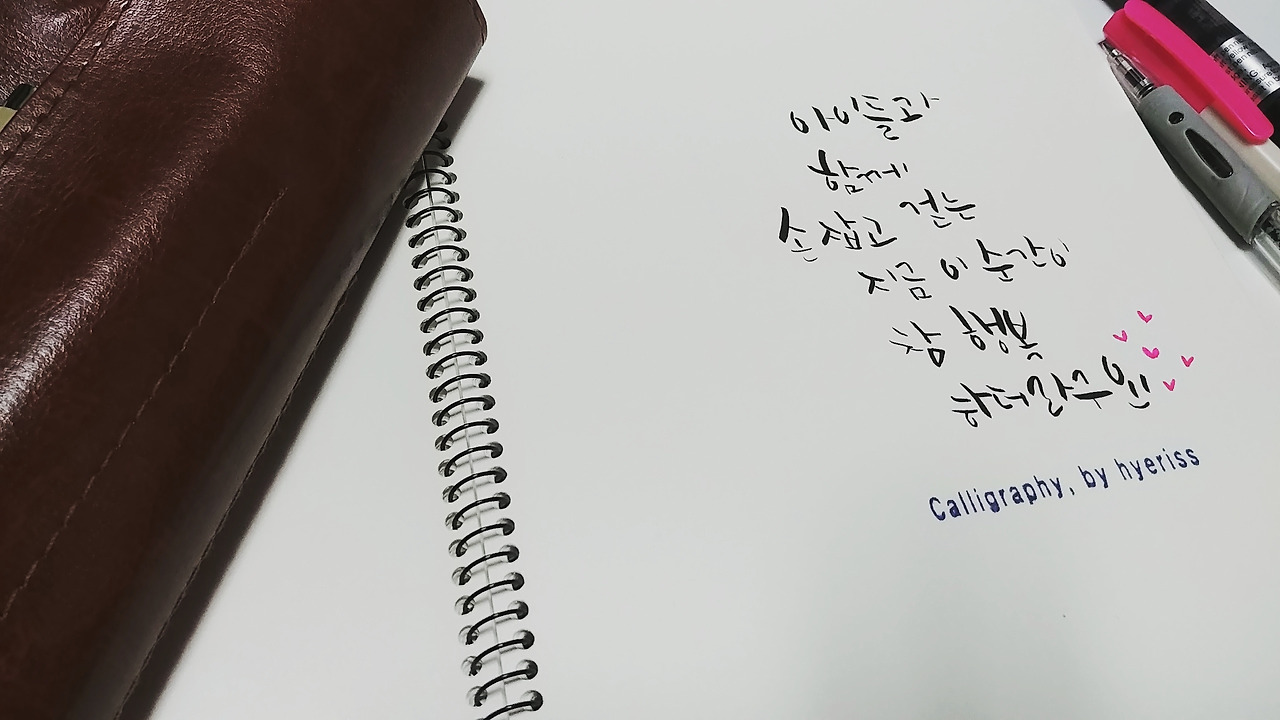 아이들과
함께
손 잡고 걷는
지금 이 순간이
참 행복
하더라구요
Calligraphy, by hyeriss